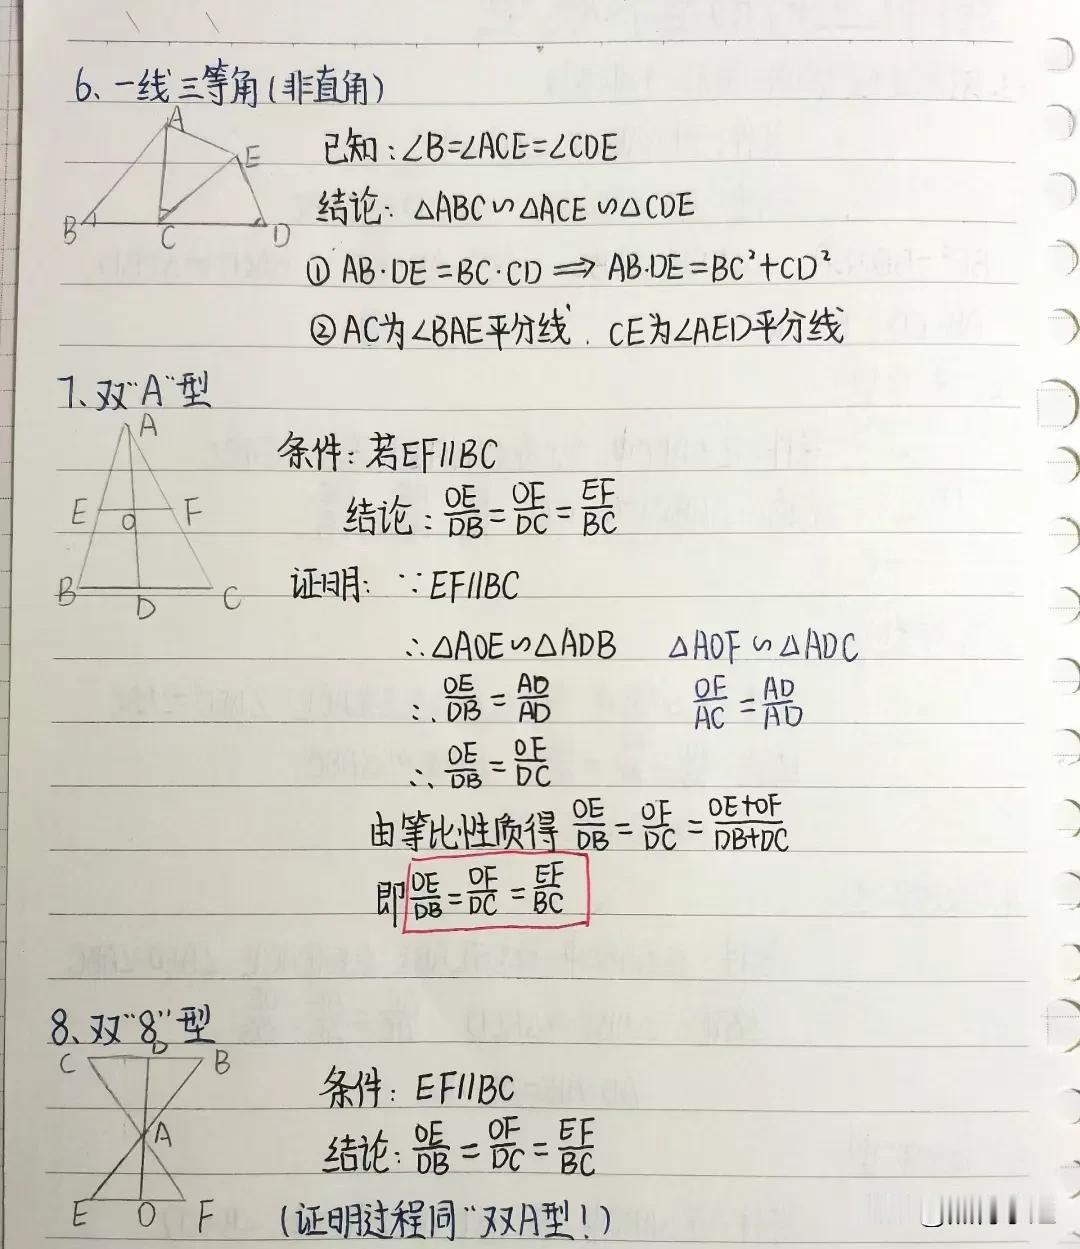 6、一线三等角(非直角)
A
E
B
C
D
已知:∠B=∠ACE=∠CDE
结论:△ABC∽△ACE∽△CDE
① AB·DE=BC·CD ⟹ AB·DE=BC²+CD²
② AC为∠BAE平分线、CE为∠AED平分线
7、双"A"型
A
E
O
F
B
D
C
条件:若EF//BC
结论:OE/DB=OF/DC=EF/BC
证明:∵EF//BC
∴△AOE∽△ADB △AOF∽△ADC
∴OE/DB=AO/AD OF/AC=AD/AD
∴OE/DB=OF/DC
由等比性质得 OE/DB=OF/DC=OE+OF/DB+DC
即 OE/DB=OF/DC=EF/BC
8、双"8"型
C
D
B
A
E
O
F
条件:EF//BC
结论:OE/DB=OF/DC=EF/BC
(证明过程同"双A型!)